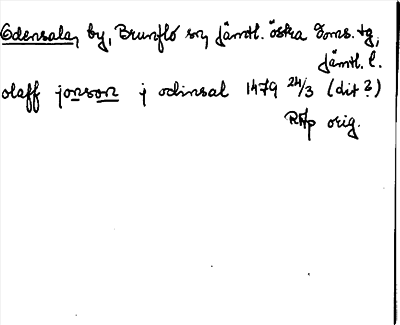 Odensala, by, Brunflo sn, Jämtl. östra doms. tg,
Jämtl. l.
olaff jonson j odinsal 1479 24/3 (dit?)
RAp orig.